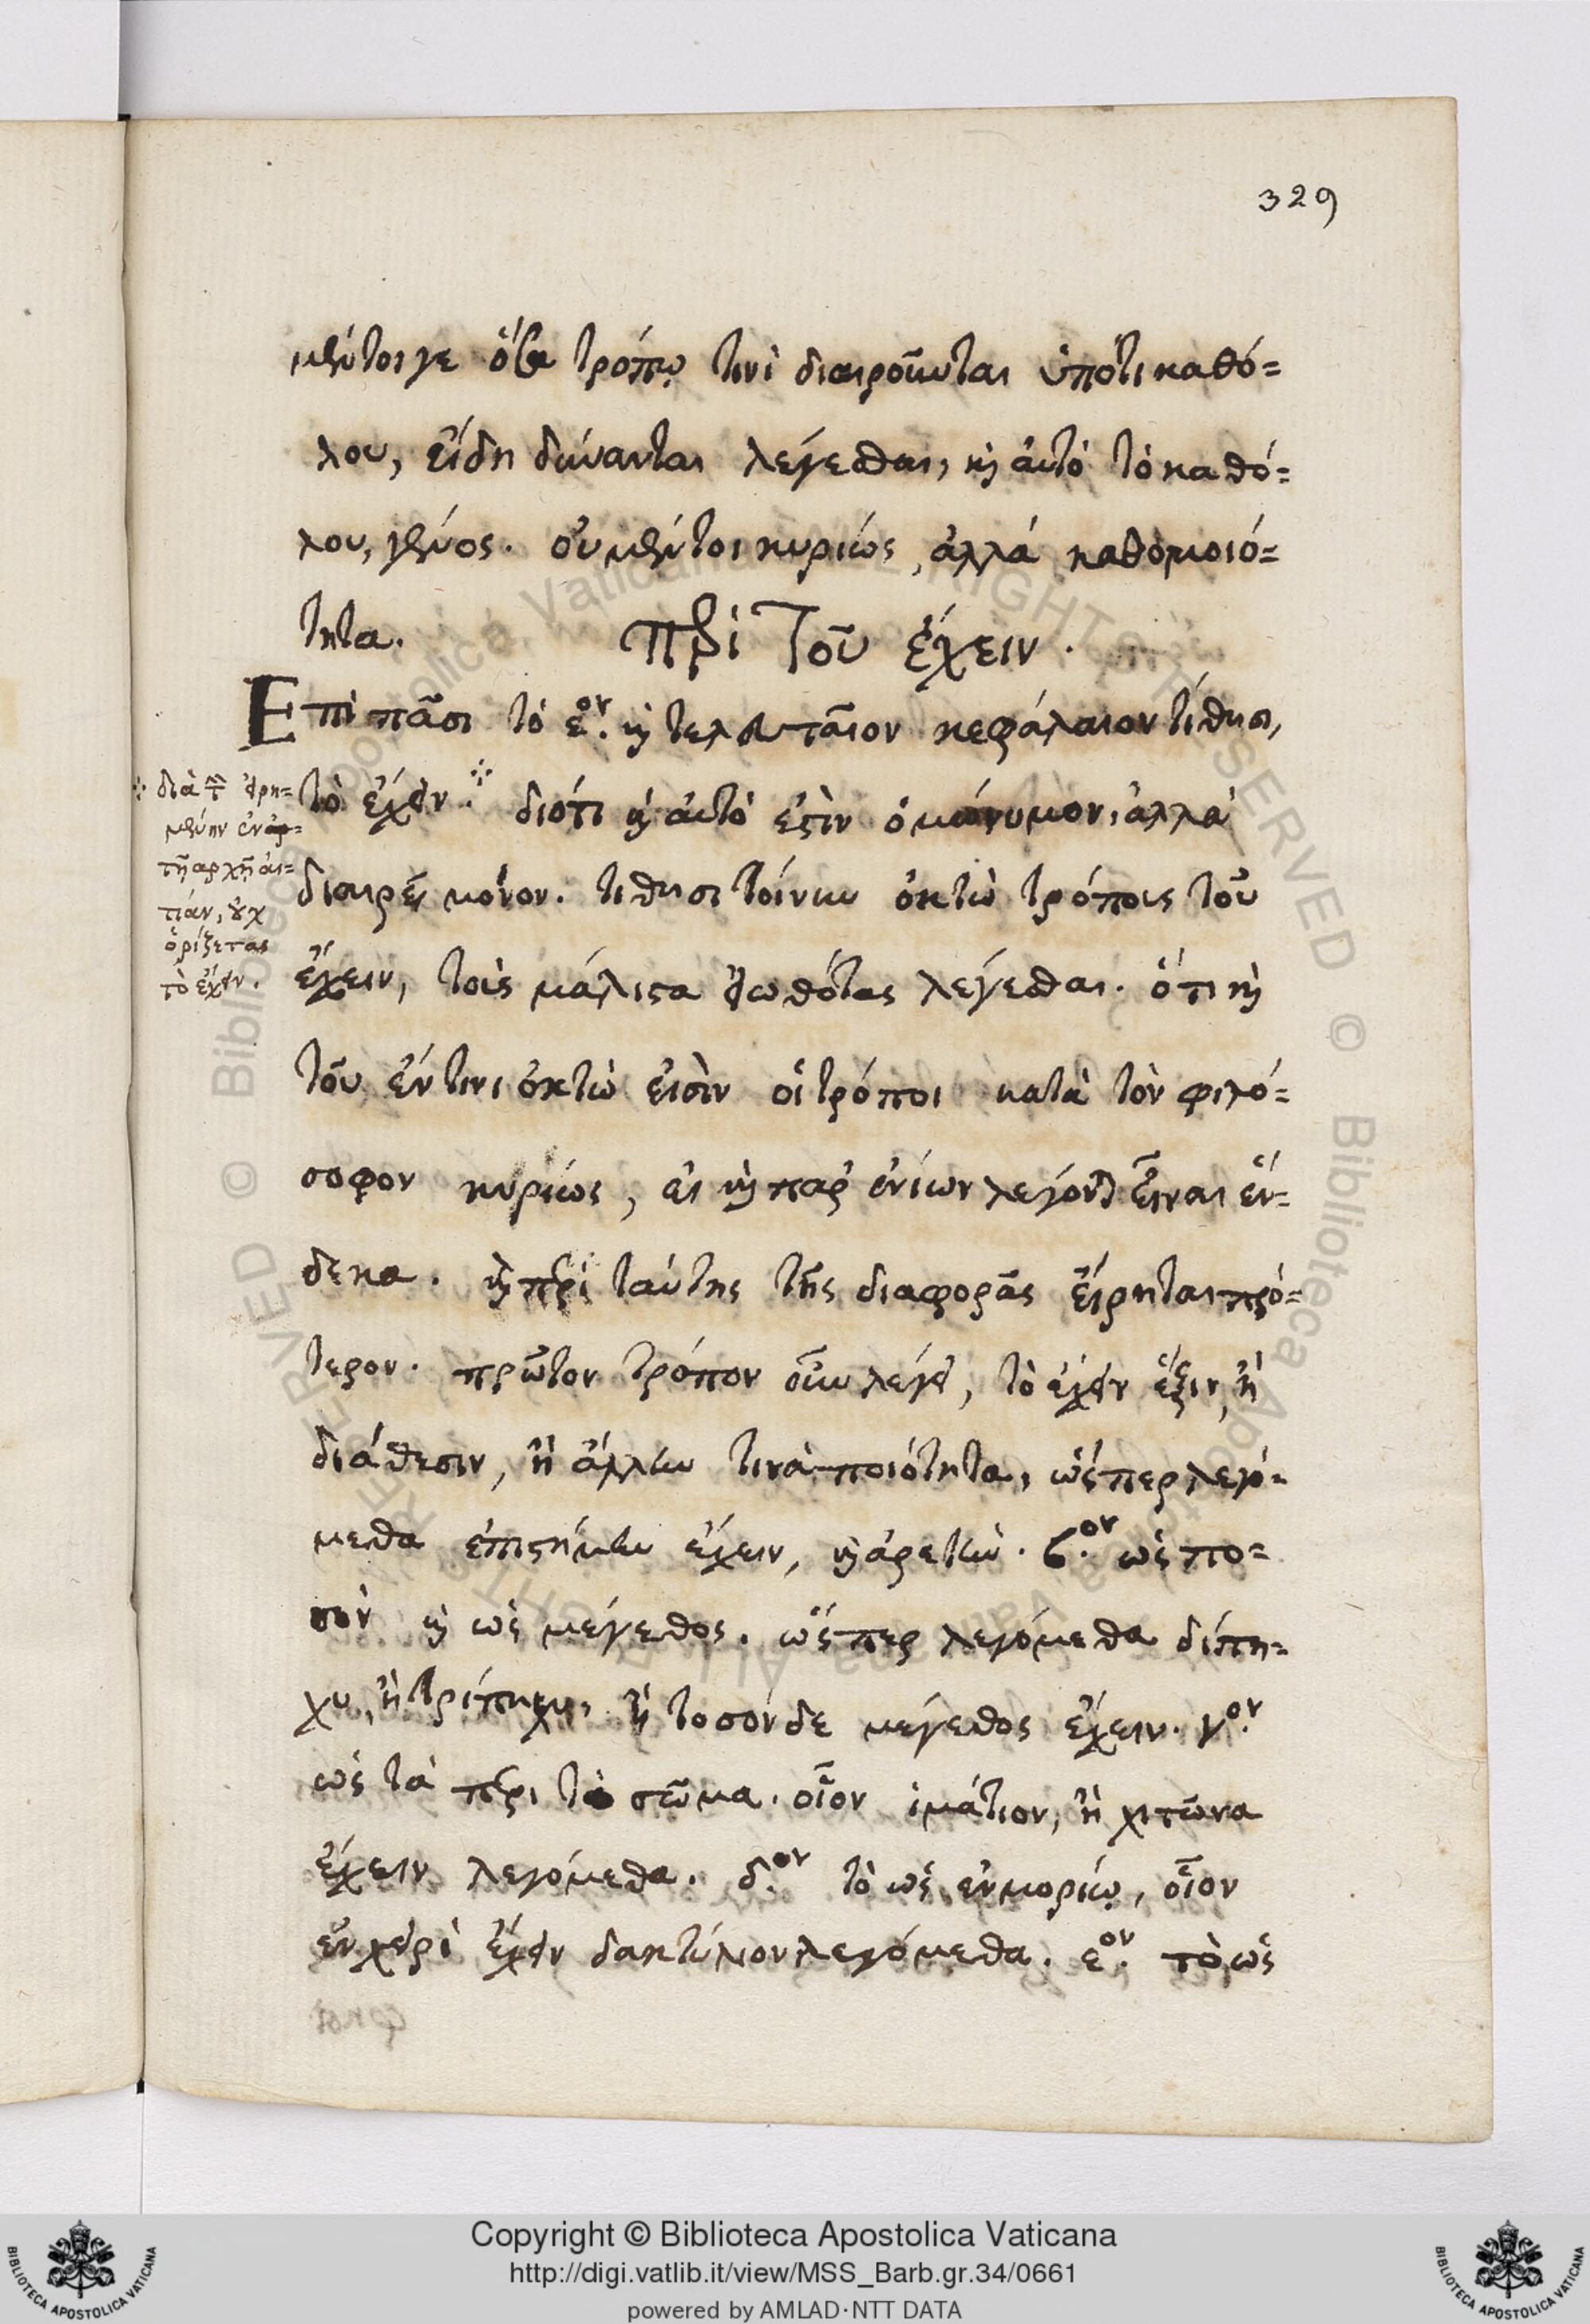 329
μέντοιγε ὅτε τρόπῳ τινὶ διαιροῦνται ὑπότι καθό=
λου, εἴδη δύνανται λέγεσθαι, καὶ αὐτὸ τὸ καθό=
λου, γένος. οὐ μέντοι κυρίως, ἀλλά καθομοιό=
τητα. Περὶ Τοῦ ἔχειν.
Ἐπὶ πᾶσι τὸ ε.ον καὶ τελευταῖον κεφάλαιον τίθησι,
τὸ ἔχειν. διότι καὶ αὐτὸ ἐστὶν ὁμώνυμον, ἀλλὰ
διαιρεῖ μόνον. τίθησι τοίνυν ὀκτὼ τρόπους τοῦ
ἔχειν, τοὺς μάλιστα εἰωθότας λέγεσθαι. ὅτι καὶ
τοῦ ἔν τινι ὀκτὼ εἰσὶν οἱ τρόποι κατὰ τὸν φιλό=
σοφον κυρίως, εἰ καὶ παρ' ἐνίων λέγονται εἶναι ἕν=
δεκα. καὶ περὶ ταύτης τῆς διαφορᾶς εἴρηται πρό=
τερον. πρῶτον τρόπον οὖν λέγει, τὸ ἔχειν ἕξιν, ἢ
διάθεσιν, ἢ ἄλλην τινὰ ποιότητα, ὥσπερ λεγό=
μεθα ἐπιστήμην ἔχειν, καὶ ἀρετὴν. β.ον ὡς πο=
σὸν καὶ ὡς μέγεθος. ὥσπερ λεγόμεθα δίπη=
χυ, ἢ τρίπηχυ, ἢ τοσόνδε μέγεθος ἔχειν. γον.
ὡς τὰ περι τὸ σῶμα. οἷον ἱμάτιον, ἢ χιτῶνα
ἔχειν λεγόμεθα. δ.ον τὸ ὡς ἐν μορίῳ, οἷον
ἐν χειρὶ ἔχειν δακτύλιον λεγόμεθα. ε.ον τὸ ὡς
διὰ τὴν εἰρη=
μένην ἐν
τῇ αρχῇ αἰ=
τίαν, οὐχ
ὁρίζεται
τὸ ἔχειν.
Copyright © Biblioteca Apostolica Vaticana
http://digi.vatlib.it/view/MSS_Barb.gr.34/0661
powered by AMLAD·NTT DATA
BIBLIOTECA APOSTOLICA VATICANA
BIBLIOTECA APOSTOLICA VATICANA